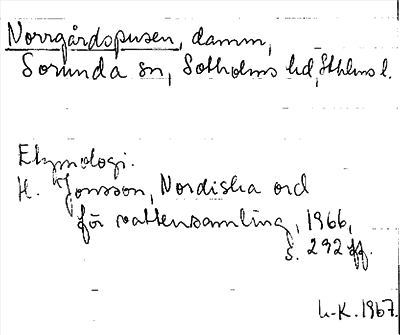 Norrgårdspusen, damm,
Sorunda sn, Sotholms hd, Sthlms l.
Etymologi.
H. Jonsson, Nordiska ord
för vattensamling, 1966,
s. 292 ff.
L-K. 1967.